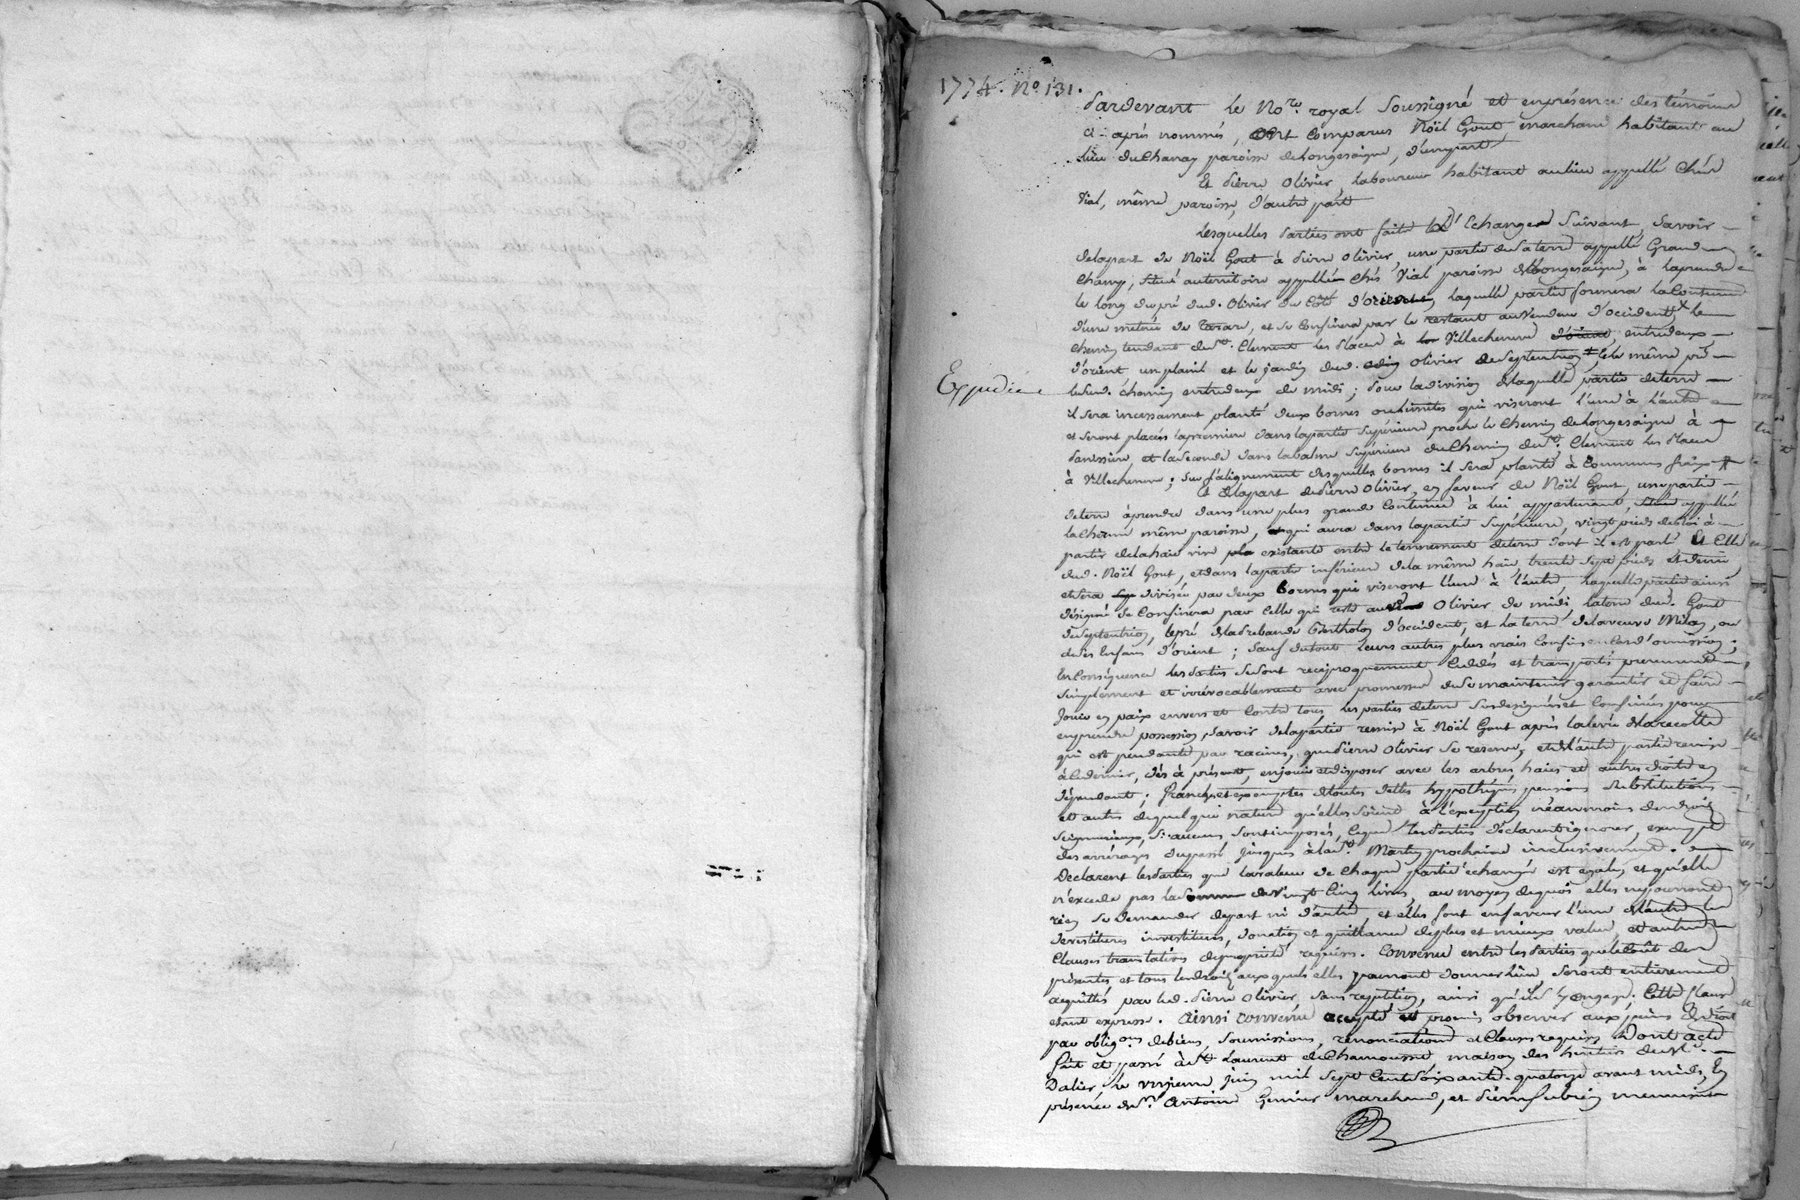 1774. N.º 131.
Pardevant le No.re royal Soussigné et en présence des témoins
ci après nommés, ont comparus Noël Gout, marchand habitant au
lieu du Chanay paroisse de longesaigne, d'une part
Et Pierre Olivier, laboureur habitant au lieu appellé Chés
Vial, même paroisse, d'autre part
Lesquelles Parties ont fait l'Echange Suivant, Savoir
de la part de Noël Gout à Pierre Olivier, une partie de sa terre appellé Grand
Champ, Situé au territoire appellé Chés Vial paroisse de longesaigne, à la prendre
le long du pré dud. Olivier du côté d'orient, laquelle partie formera la Contenue
d'une metrée de Tarare, et se Confinera par le restant au Vendeur d'occident, le
Chemin tendant de St. Clement les Places à Villechenève entredeux
d'orient un planil et le jardin dud. Olivier de Septentrion, le même pré
led. chemin entredeux de midi; Pour la division de laquelle partie de terre
il sera incessament planté deux bornes ou limites qui viseront l'une à l'autre
et seront placés la premiere dans la partie Supérieure proche le Chemin de longesaigne à
Panissière et la Seconde dans la balme Supérieure du Chemin de St. Clement les Places
à Villechenève; Sur l'alignement desquelles bornes il sera planté à Communs fraix
Et de la part de Pierre Olivier, en faveur de Noël Gout, une partie
de terre à prendre dans une plus grande Contenue à lui appartenant, appellée
même paroisse, qui aura dans la partie Supérieure, vingt pieds de Roi à
partir de la haie vive existante entre le tennement de terre dont il est parlé et Celle
dud. Noël Gout, et dans la partie inférieure de la même haie trente Sept pieds et demi,
et sera divisée par deux Bornes qui viseront l'une à l'autre, laquelle partie ainsi
désigné se Confinera par Celle qui reste aud. Olivier de midi, la terre dud. Gout
de Septentrion, le pré de la Prebende Bertholon d'occident, et la terre de la veuve Milan, ou
de ses Enfans d'orient; Sauf du tout leurs autres plus vrais Confins en cas d'omission;
En Conséquence les Parties se sont reciproquement Cuddés et transportés purement
simplement et irrévocablement avec promesse de se maintenir garantir et faire
jouir en paix envers et Contre tous les parties de terre Susdesignées et Confinées pour
en prendre possession, Savoir de la partie remise à Noël Gout après la levée de la recolte
qui est pendante par racines, que Pierre Olivier se reserve, et de l'autre partie remise
à Ce dernier, dès à présent, en jouir et disposer avec les arbres haies et autres droits en
dépendants; franches et exemptes de toutes dettes hypothéques pensions Substitutions
et autres de quelque nature qu'elles Soient à l'exception néanmoins des droits
Seigneuriaux, Si aucuns Sont imposés, lesquels les Parties déclarent ignorer, exempt
des arrérages du passé jusques à la St. Martin prochaine inclusivement.
Declarent les Parties que la valeur de Chaque partie échangée est égale, et qu'elle
n'excede pas la Somme de Vingt Cinq livres, au moyen de quoi elles ne pourront
rien se Demander de part ni d'autre, et elles font en faveur l'une de l'autre les
devestitures investitures, donation et quittance de plus et mieux value, et autres
Clauses translatives de propriété requises. Convenu entre les Parties que le Coût des
présentes et tous les droits auxquels elles pourront donner lieu Seront entièrement
acquittés par led. Pierre Olivier, sans répétition, ainsi qu'il s'y engage; Cette Clause
étant expresse. Ainsi convenu accepté et promis observer aux peines de droit
par oblig.ons de biens, Soumissions, renonciations et Clauses requises Dont acte
fait et passé à St. Laurent de Chamousset maison des héritiers de Mr.
Dalier, le juin mil Sept Cent Soixante quatorze avant midi, En
présence de Sr. Antoine marchand, et Pierre menuisier
Expediée